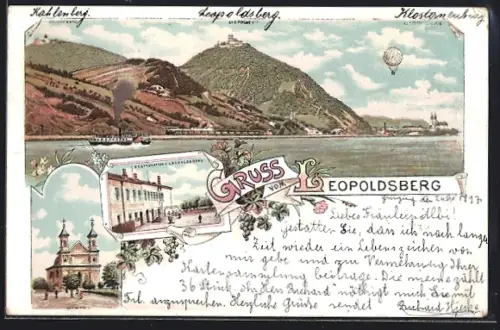 Kahlenberg. Leopoldsberg. Klosterneuburg
RESTAURATION LEOPOLDSBERG
GRUSS VOM LEOPOLDSBERG
Liebes Fräulein
gestatten Sie, dass ich nach langer
Zeit wieder ein Lebenszeichen von
mir gebe und zur Vermehrung Ihrer
Kartensammlung beitrage. Die meine zählt
36 Stück. nöthigt mich Sie mit
Frl. anzusprechen. Herzliche Grüsse sendet